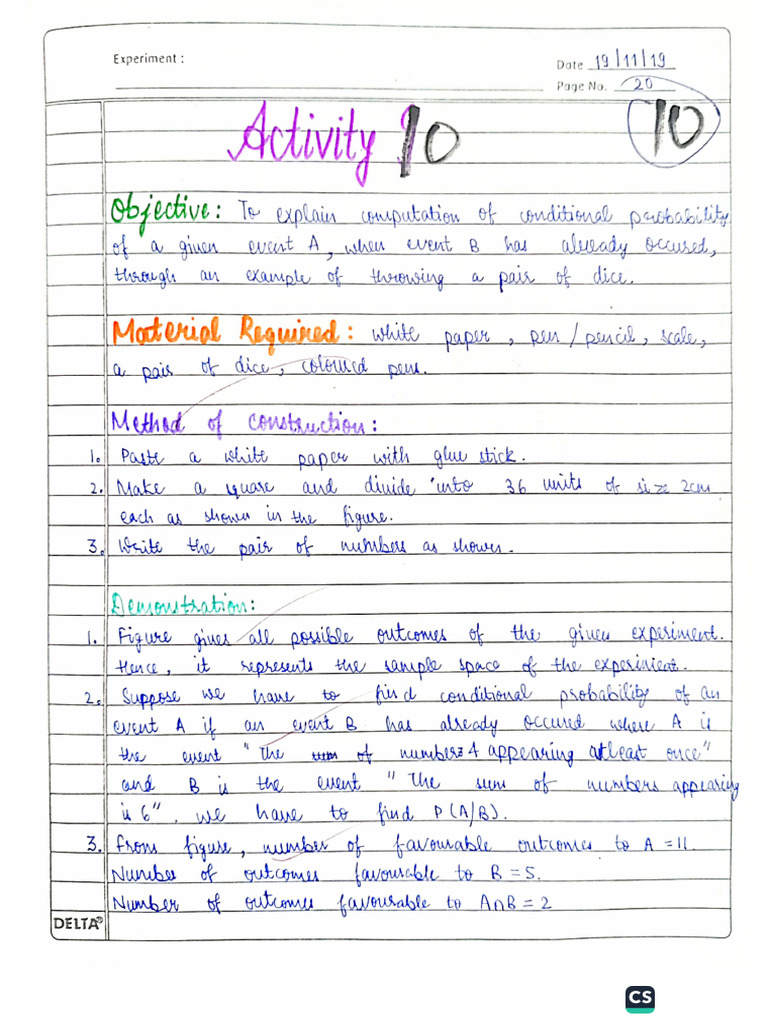 Experiment :
Date 19/11/19
Page No. 20
Activity 10
10
Objective: To explain computation of conditional probability
of a given event A, when event B has already occured,
through an example of throwing a pair of dice.
Material Required: white paper, pen/pencil, scale,
a pair of dice, coloured pens.
Method of construction:
1. Paste a white paper with glue stick.
2. Make a square and divide into 36 units of size 2cm
each as shown in the figure.
3. Write the pair of numbers as shown.
Demonstration:
1. Figure gives all possible outcomes of the given experiment.
Hence, it represents the sample space of the experiment.
2. Suppose we have to find conditional probability of an
event A if an event B has already occured where A is
the event "the of numbers 4 appearing atleast once"
and B is the event "The sum of numbers appearing
is 6". we have to find P(A/B).
3. From figure, number of favourable outcomes to A = 11.
Number of outcomes favourable to B = 5.
Number of outcomes favourable to A∩B = 2
DELTA®
CS